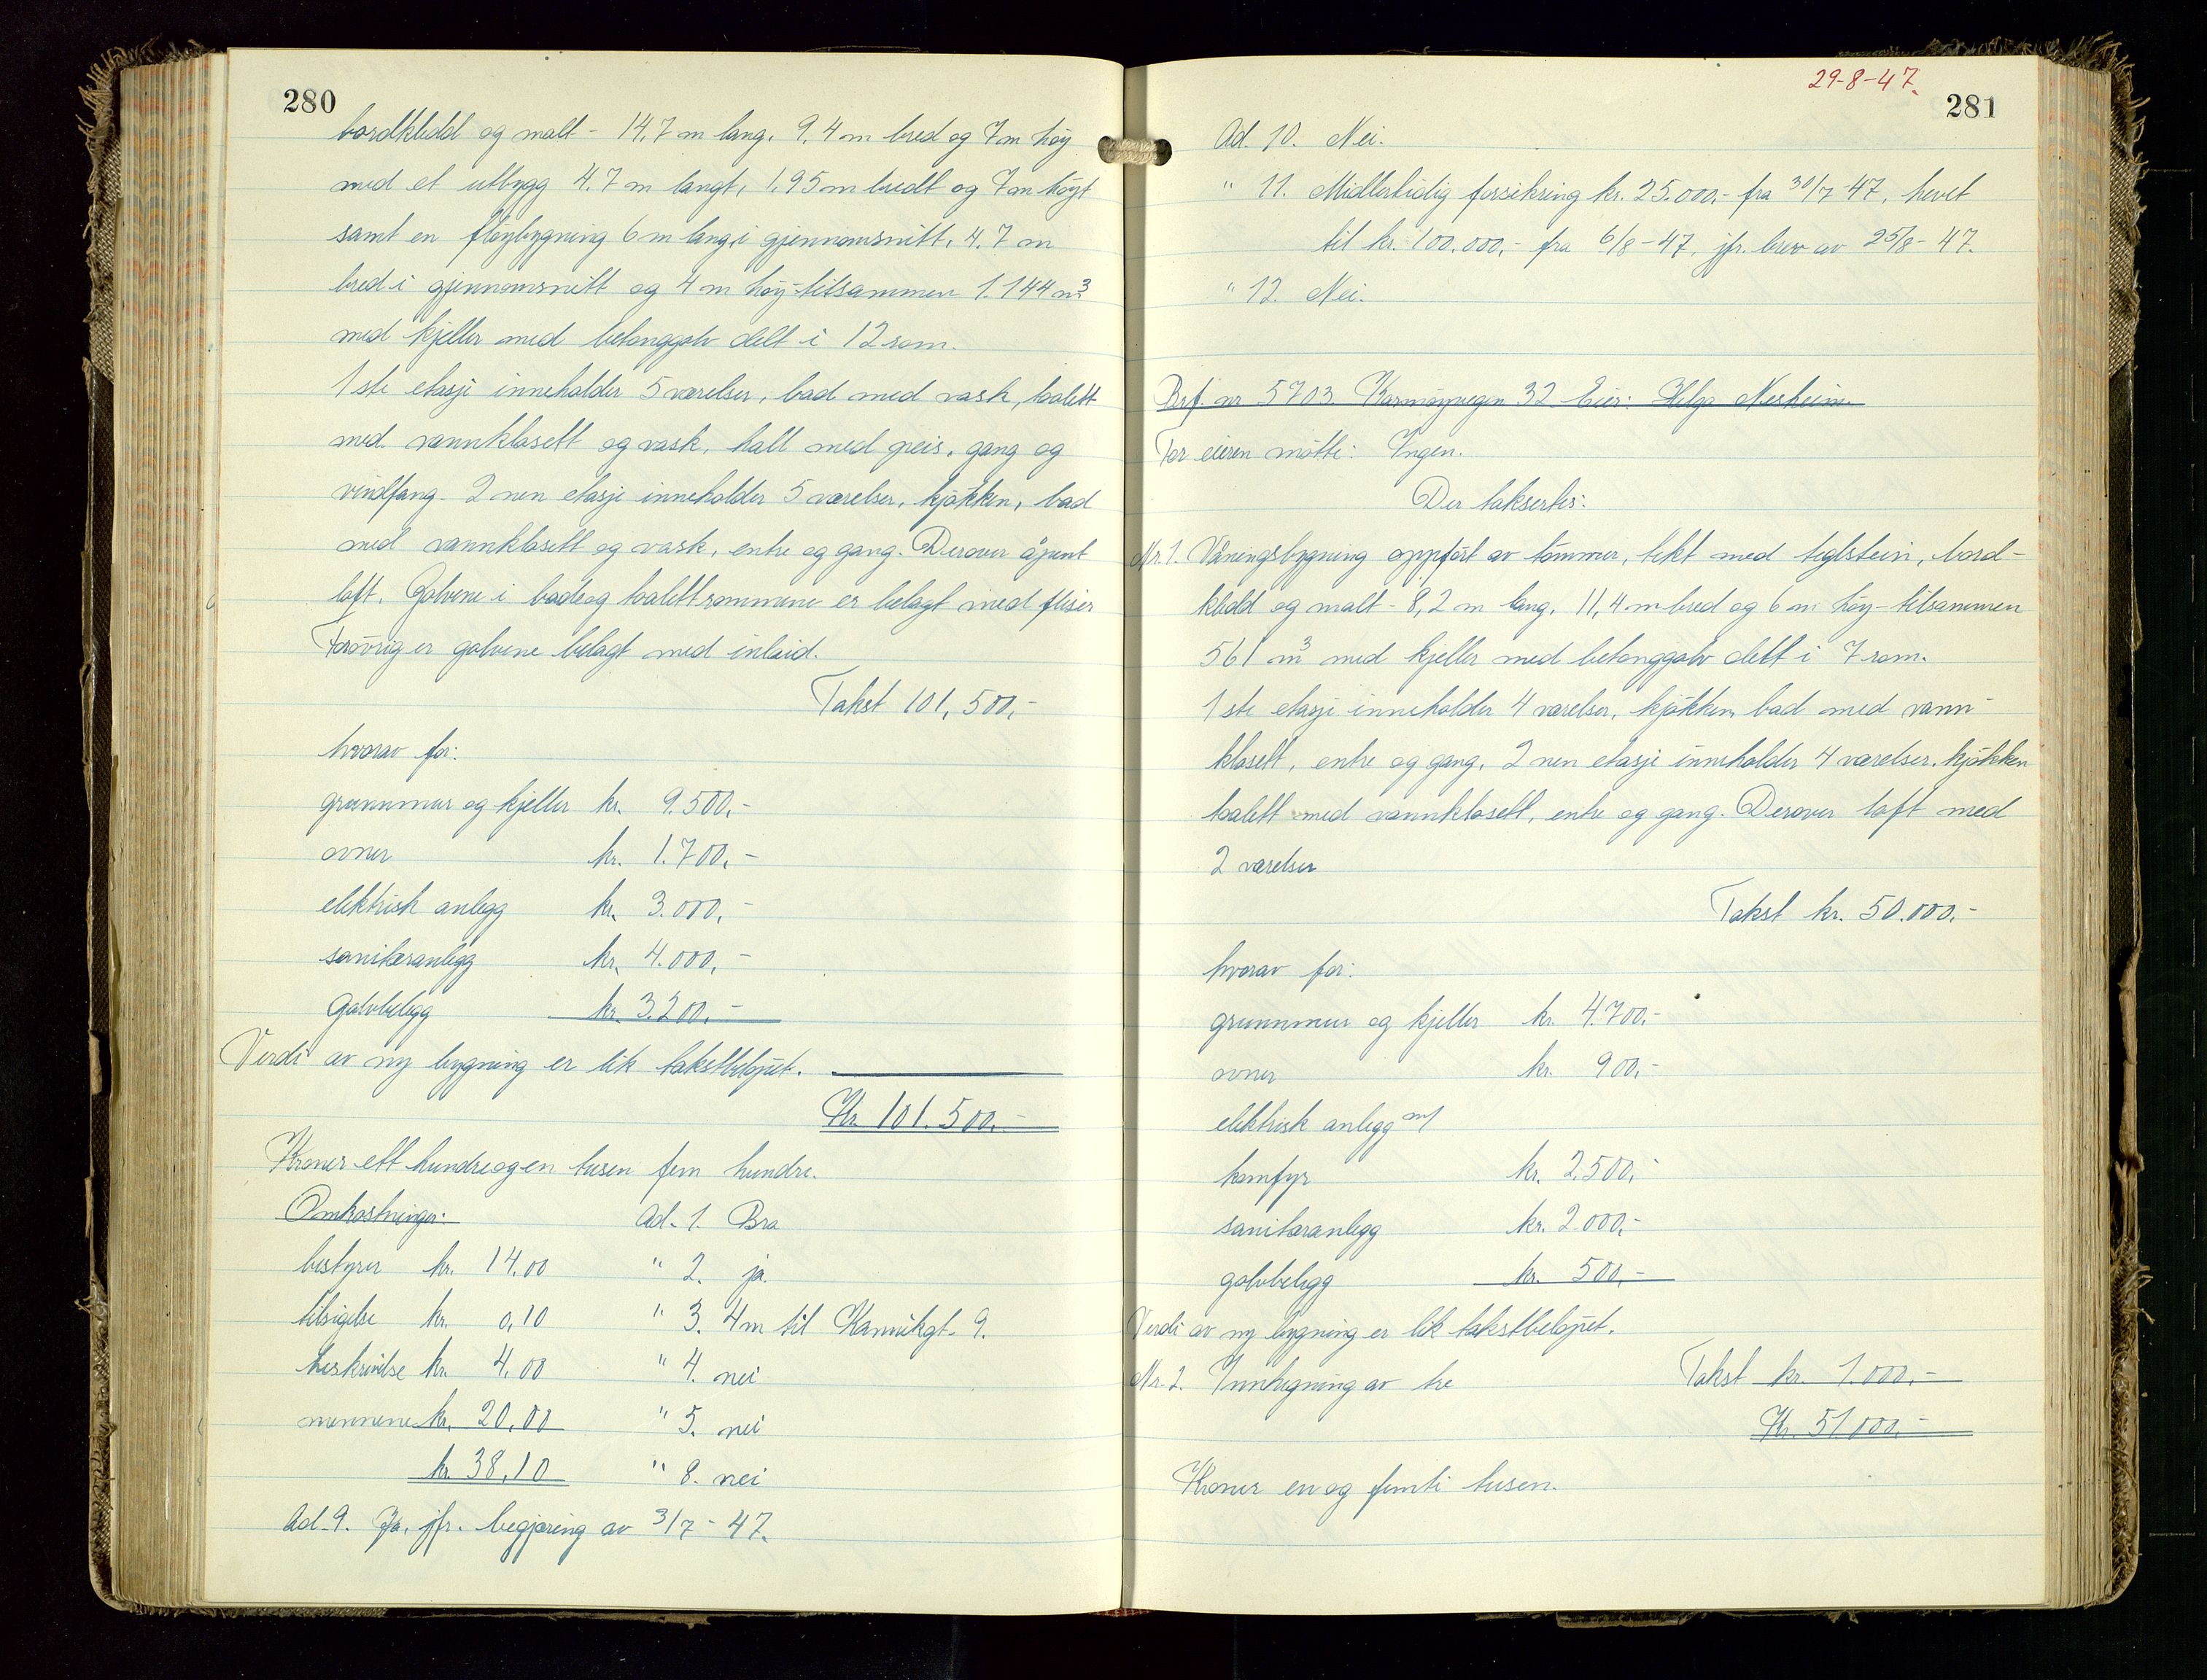 280
bordkledd og malt - 14,7 m lang, 9,4 m bred og 7 m høy
med et utbygg 4,7 m langt, 1,95 m bredt og 7 m høyt
samt en fløybygning 6 m lang i gjennomsnitt, 4,7 m
bred i gjennomsnitt og 4 m høy - tilsammen 1.144 m³
med kjeller med betonggolv delt i 12 rom.
1ste etasje inneholder 5 værelser, bad med vask, toalett
med vannklosett og vask, hall med peis, gang og
vindfang. 2nen etasje inneholder 5 værelser, kjøkken, bad
med vannklosett og vask, entre og gang. Derover åpent
loft. Golvene i bade og toalettrommene er belagt med fliser
Forøvrig er golvene belagt med inlaid.
Takst 101,500,-
hvorav for:
grunnmur og kjeller kr. 9.500,-
ovner kr. 1.700,-
elektrisk anlegg kr. 3.000,-
sanitæranlegg kr. 4.000,-
Golvbelegg kr. 3200.-
Verdi av ny bygning er lik takstbeløpet.
Kr. 101.500.-
Kroner ett hundreogen tusen fem hundre.
Omkostninger: Ad. 1. Bra
bestyrer kr. 14,00 " 2. ja.
tilsigelse kr. 0,10 " 3. 4m til Kannikgt. 9.
beskrivelse kr. 4,00 " 4. nei
mennene kr. 20,00 " 5. nei
kr. 38,10 " 8. nei
Ad. 9. Ja, jfr. begjæring av 3/7 - 47.
29-8-47.
281
Ad. 10. Nei.
" 11. Midlertidig forsikring kr. 25.000,- fra 30/7-47, hevet
til kr. 100.000,- fra 6/8-47, jfr. brev av 25/8-47.
" 12. Nei.
Brf. nr 5703 Karmøyvegen 32 Eier: Helga Nesheim
For eieren møtte: Ingen.
Der taksertes:
Nr. 1. Våningsbygning oppført av tømmer, tekt med teglstein, bord-
kledd og malt - 8,2 m lang, 11,4 m bred og 6 m høy - tilsammen
561 m³ med kjeller med betonggolv delt i 7 rom.
1ste etasje inneholder 4 værelser, kjøkken, bad med vann-
klosett, entre og gang, 2nen etasje inneholder 4 værelser, kjøkken
toalett med vannklosett, entre og gang. Derover loft med
2 værelser
Takst kr. 50.000,-
hvorav for:
grunnmur og kjeller kr. 4.700,-
ovner kr. 900,-
elektrisk anlegg m/
komfyr kr. 2.500,-
sanitæranlegg kr. 2.000,-
golvbelegg kr. 500,-
Verdi av ny bygning er lik takstbeløpet.
Nr. 2. Innhegning av tre Takst kr. 1.000,-
Kr. 51.000,-
Kroner en og femti tusen.